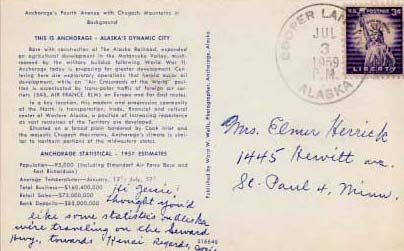 Anchorage's Fourth Avenue with Chugach Mountains in
Background
THIS IS ANCHORAGE - ALASKA'S DYNAMIC CITY
Born with construction of The Alaska Railroad, expanded
on agricultural development in the Matanuska Valley, mush-
roomed by the military buildup following World War II,
Anchorage today is preparing for greater development. Cen-
tering here are exploratory operations that herald major oil
development, while an "Air Crossroads of the World" posi-
tion is accentuated by trans-polar traffic of foreign air car-
riers (SAS, AIR FRANCE, KLM) on Europe and Far East routes.
In a key location, this modern and progressive community
of the North is transportation, trade, financial and cultural
center of Western Alaska, a position of increasing importance
as vast resources of the Territory are developed.
Situated on a broad point bordered by Cook Inlet and
the majestic Chugach Mountains, Anchorage's climate is
similar to northern portions of the midwestern states.
ANCHORAGE STATISTICAL - 1957 ESTIMATES
Population—95,000 (Including Elmendorf Air Force Base and
Fort Richardson)
Average Temperatures—January, 13°; July, 57°
Total Business—$160,400,000
Retail Sales—$73,000,000
Bank Deposits—$85,000,000
Hi Jessie!
thought you'd
like some statistics on Alaska
were traveling on the Seward
Hwy. towards Kenai Regards,
S16640
Published by Ward W. Wells, Photographer, Anchorage, Alaska
COOPER LAN
JUL
3
1959
P.M.
ALASKA
U.S. POSTAGE
3¢
LIBERTY
Mrs. Elmer Herrick
1445 Hewitt ave.
St. Paul 4, Minn.